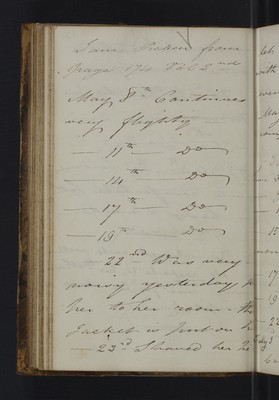 Jane [...] from
page 174 Vol 2nd
May 8th Continues
very flighty
— 11th — Do
— 14th — Do
— 17th — Do
— 19th — Do
— 22nd Was very
noisy yesterday
her to her room - the
Jacket is put on h
— 23rd Shaved her he